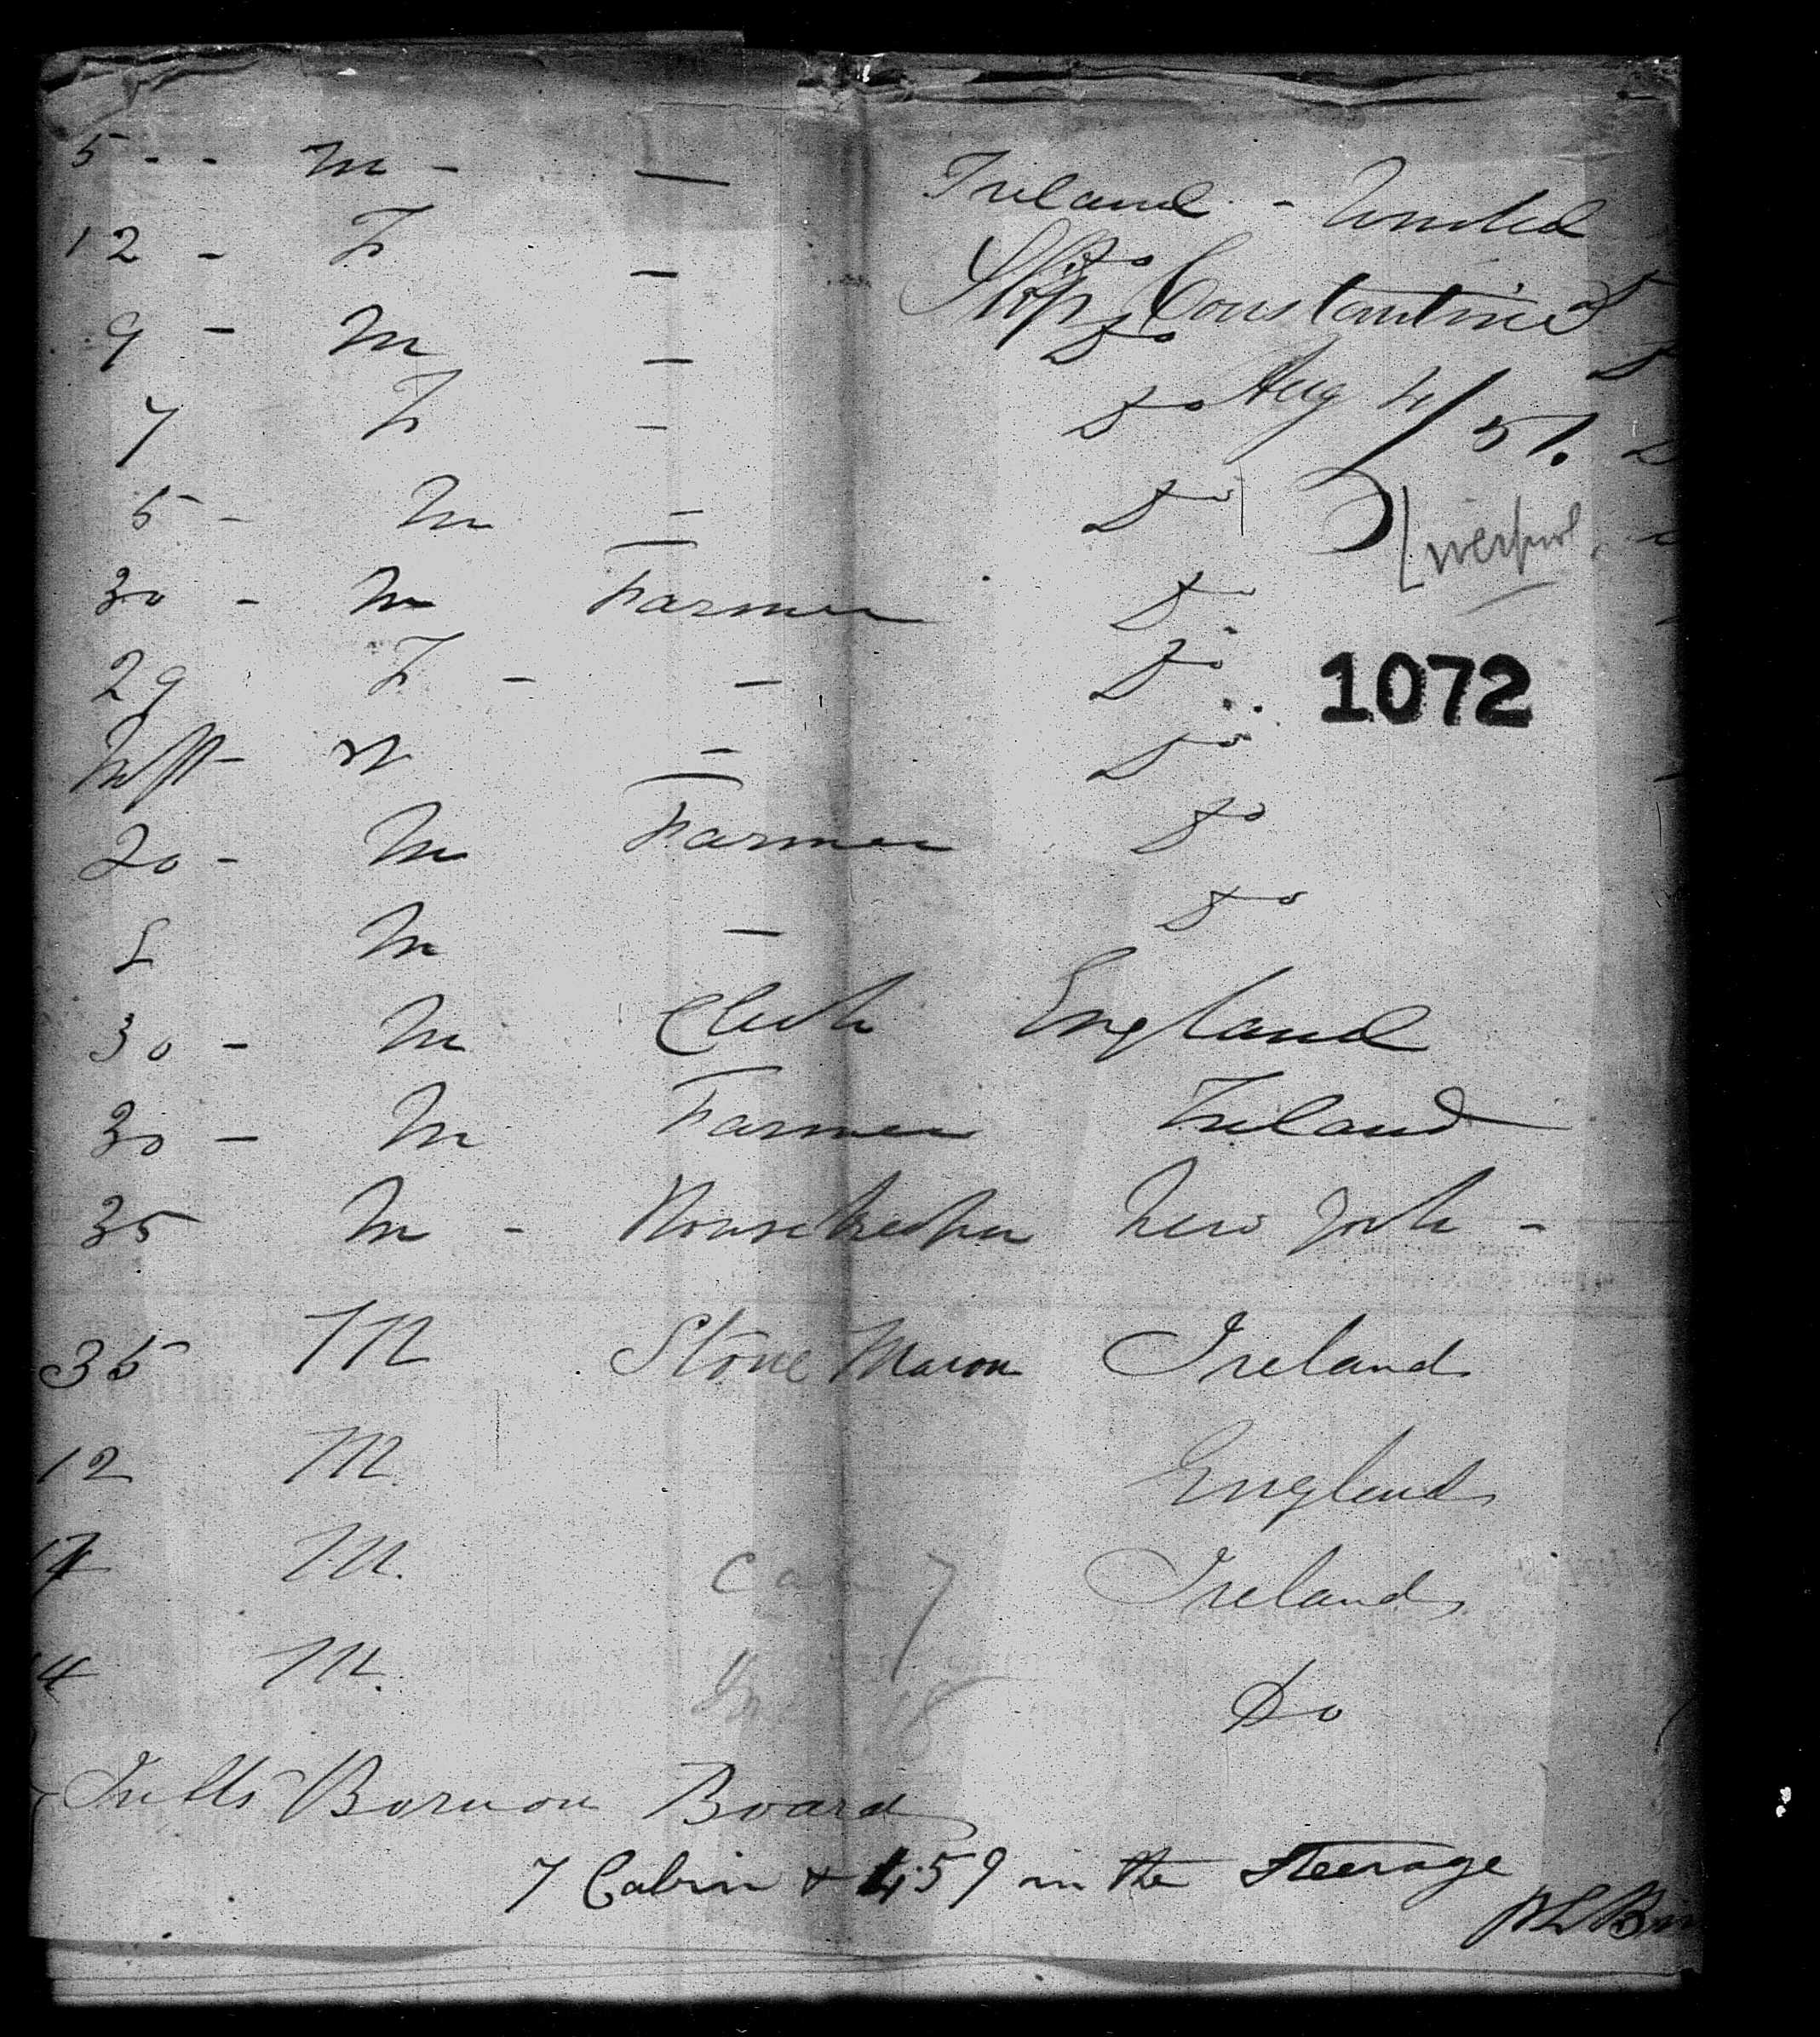 5 - - M - — Ireland - United
12 - F — Do
Ship Constantine
9 - M — Do
Aug 4/51.
7 F — Do
5 - M — Do
Liverpool
30 - M Farmer Do
29 F - — Do
1072
Inft - M — Do
20 - M Farmer Do
M — Do
30 - M Clerk England
30 - M Farmer Ireland
35 M - New York -
35 M Stone Mason Ireland
12 M. England
M. 7 Ireland
M. 18 Do
Infts Born on Board
7 Cabin & 459 in the Steerage